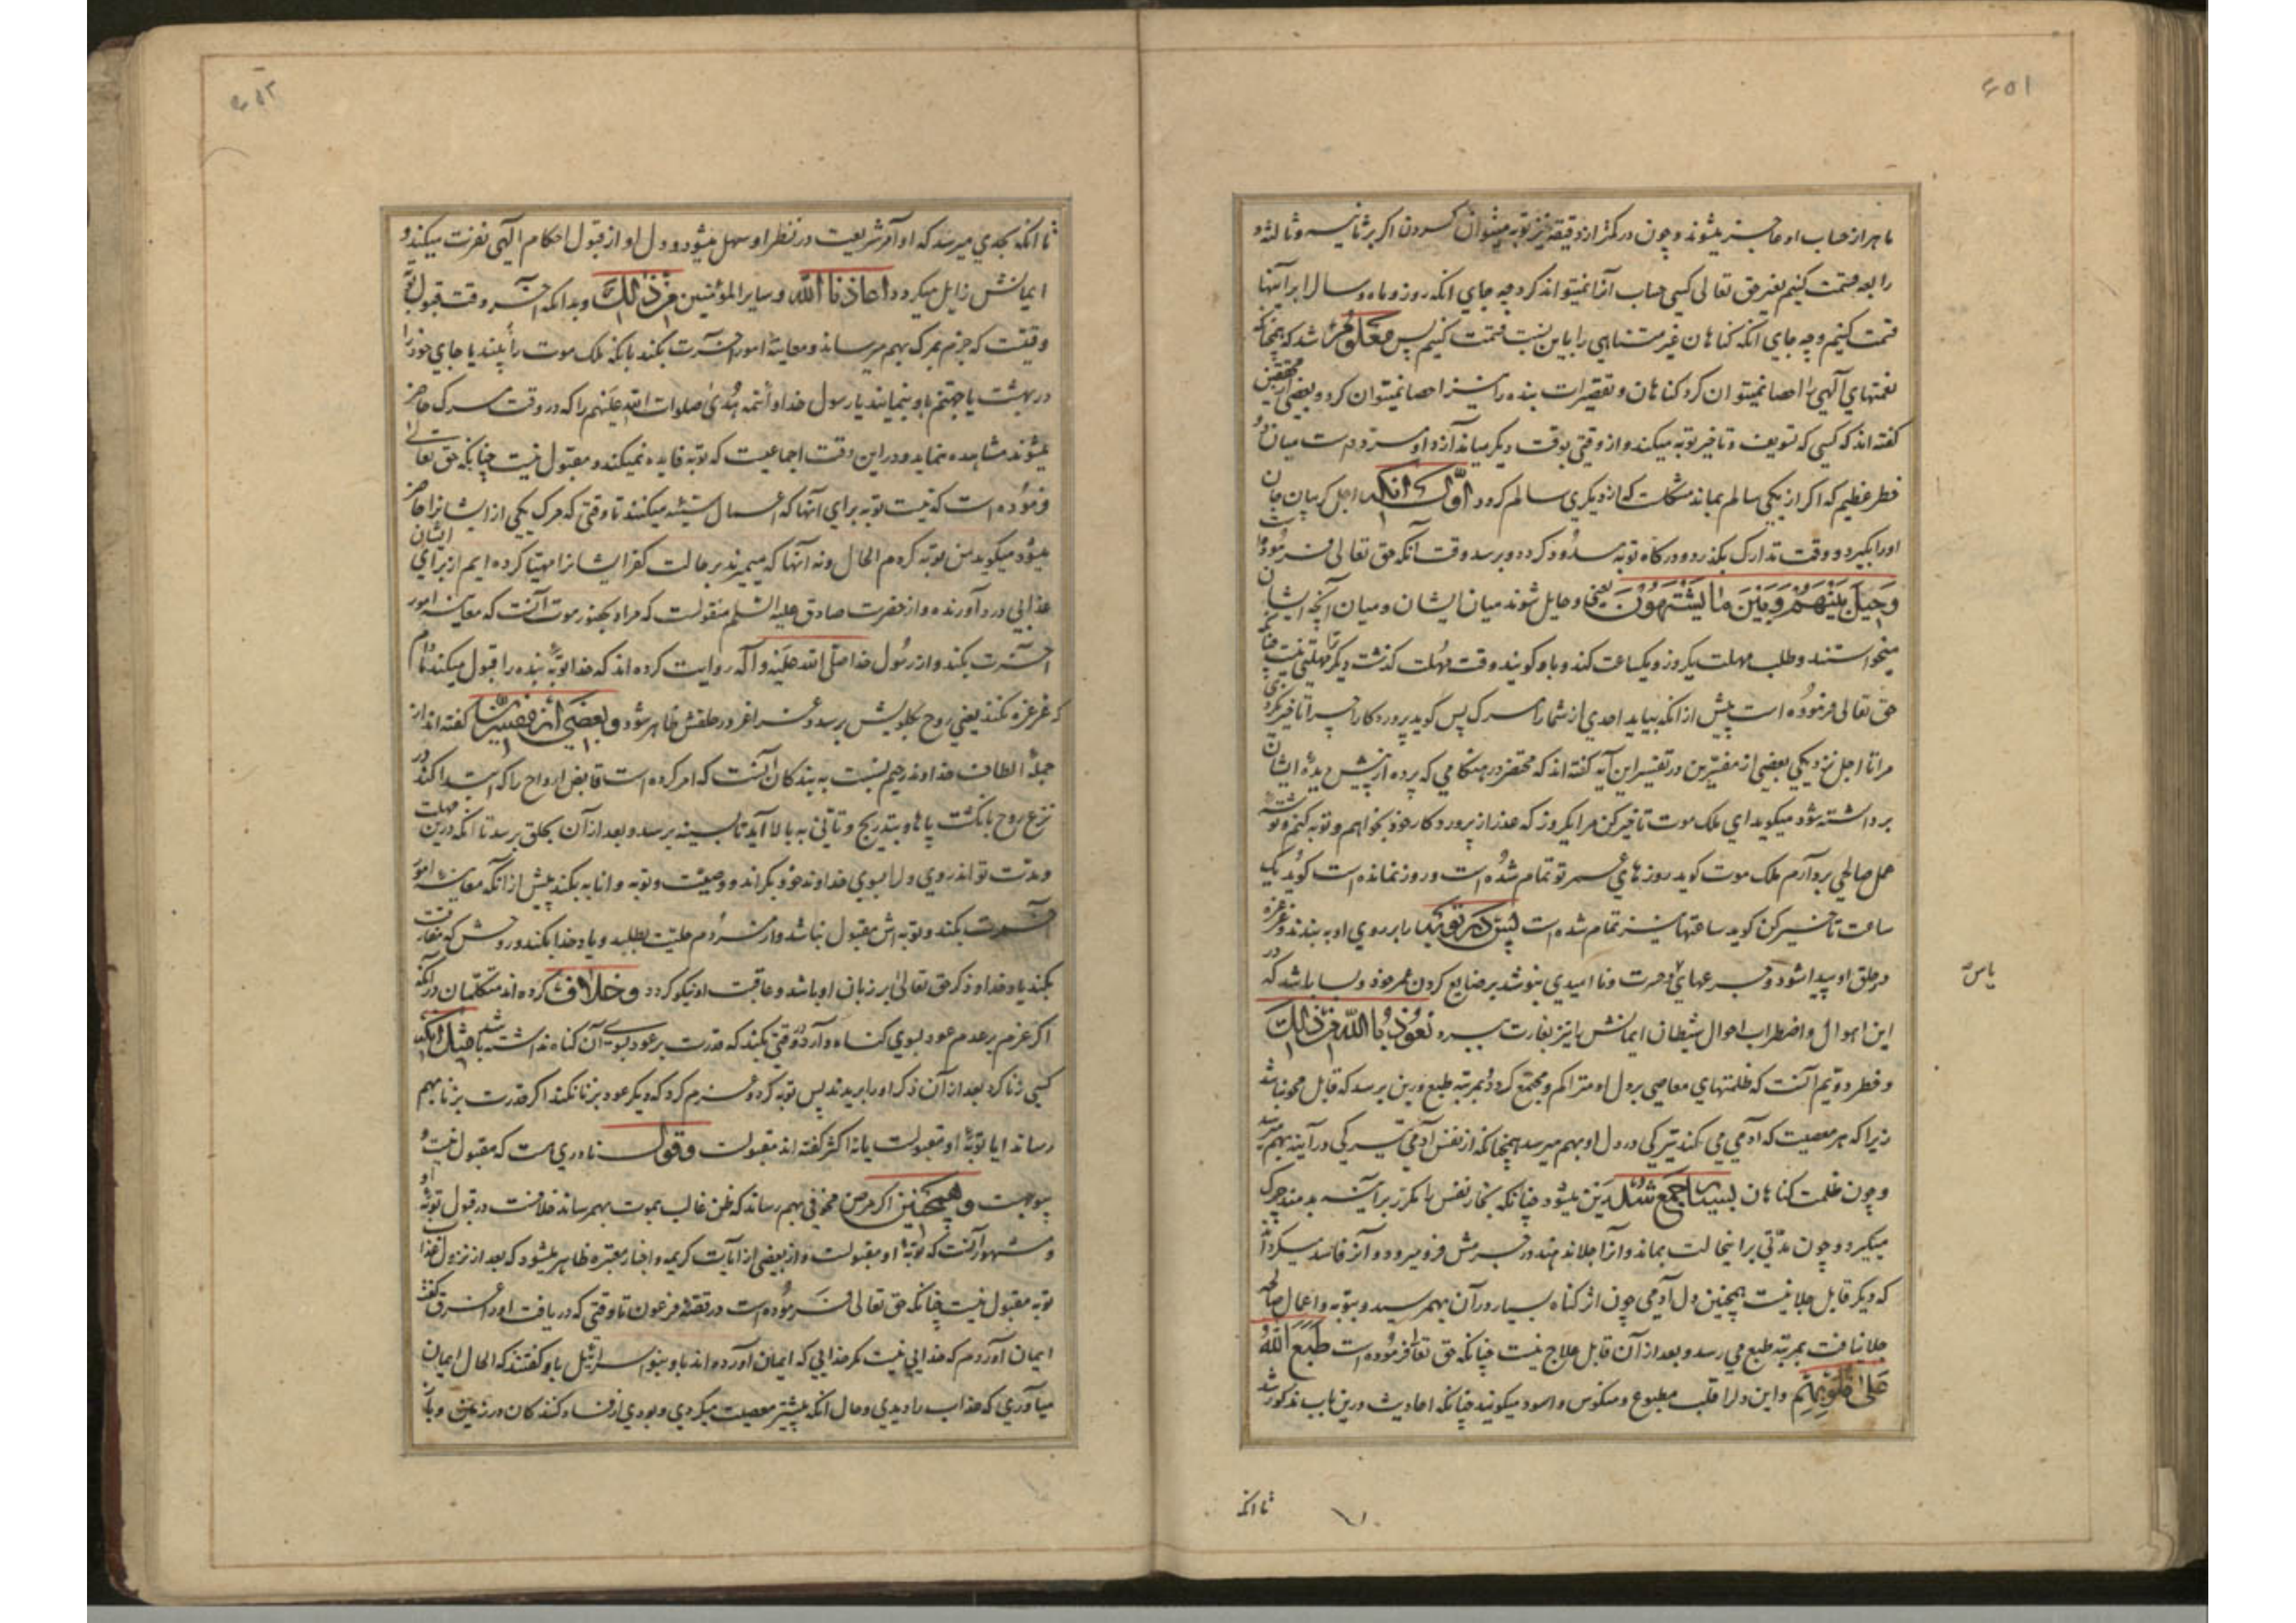 ۶۵۱
ما هر از حساب او عاجز میشوند و چون در کمتر از دقیقه نیز توبه میتوان کردن اگر بر ثانیه و ثالثه و
رابعه قسمت کنیم بغیر حق تعالی کسی حساب آنرا نمیتواند کرد چه جای انکه روز و ماه و سال را بر آنها
قسمت کنیم و چه جای انکه کناهان غیر متناهی را باین نسبت قسمت کنیم پس معلوم شد که همچنانکه
نعمتهای آلهی را احصا نمیتوان کرد کناهان و تقصیرات بنده را نیز احصا نمیتوان کرد و بعضی از محققین
کفته اند که کسی که تسویف و تاخیر توبه میکند و از وقتی بوقت دیکر میاندازد او مردد است میان دو
خطر عظیم که اکر از یکی سالم بماند مشکلست که از دیکری سالم کردد اول انکه اجل کریبان جان
اورا بکیرد و وقت تدارک بکذرد و درکاه توبه مسدود کردد و برسد وقت آنکه حق تعالی فرموده است
وَحِیلَ بَیْنَهُمْ وَبَیْنَ مَا یَشْتَهُونَ یعنی و حایل شوند میان ایشان و میان آنچه ایشان
میخواستند و طلب مهلت یکروز و یکساعت کند و باو کویند وقت مهلت کذشت دیکر ترا مهلتی نیست چنانکه
حق تعالی فرموده است پیش از انکه بیاید احدی از شما را مرک پس کوید پروردکارا چرا تاخیر نکردی
مرا تا اجل نزدیکی بعضی از مفسرین در تفسیر این آیه کفته اند که محتضر در هنکامی که پرده از پیش دیده ایشان
برداشته شود میکوید ای ملک موت تاخیر کن مرا یکروز که عذر از پروردکار خود بخواهم و توبه کنم و توشه
عمل صالحی بردارم ملک موت کوید روزهای عمر تو تمام شده است و روز نمانده است کوید یک
ساعت تاخیر کن کوید ساعتها نیز تمام شده است پس در توبه را بر روی او به بندند و غرغره
در حلق او پیدا شود و جرعهای حسرت و ناامیدی بنوشد بر ضایع کردن عمر خود و بسا باشد که در
یاس
این اهوال و اضطراب احوال شیطان ایمانش را نیز بغارت ببرد نعوذ بالله من ذلک
و خطر دویم آنست که ظلمتهای معاصی بر دل او متراکم و مجتمع کردد و بمرتبه طبع و رین برسد که قابل محو نباشد
زیرا که هر معصیت که آدمی می کند تیرکی در دل او بهم میرسد همچنانکه از نفس آدمی تیرکی در آینه بهم میرسد
و چون ظلمت کناهان بسیار جمع شد رین میشود چنانکه بخار نفس مکرر بر آینه بدمند چرک
میکیرد و چون مدتی بر اینحالت بماند و آنرا جلا ندهند در جرمش فرو میرود و آنرا فاسد میکرداند
که دیکر قابل جلا نیست همچنین دل آدمی چون اثر کناه بسیار در آن بهمرسید و بتوبه و اعمال صالحه
جلا نیافت بمرتبه طبع می رسد و بعد از آن قابل علاج نیست چنانکه حق تعالی فرموده است طَبَعَ اللهُ
عَلیٰ قُلُوبِهِمْ و این دل را قلب مطبوع و منکوس و اسود میکویند چنانکه احادیث درین باب مذکور شد
تا انکه
۶۵۲
تا انکه بحدی میرسد که اوامر شریعت در نظر او سهل میشود و دل او از قبول احکام الهی نفرت میکند و
ایمانش زایل میکردد اعاذنا الله و سایر المؤمنین من ذلک و بدانکه آخر وقت قبول توبه
وقتیست که جزم بمرک بهم رساند و معاینه امور آخرت بکند بانکه ملک موت را به بیند یا جای خود را
در بهشت یا جهنم باو بنمایند یا رسول خدا و ائمه هدی صلوات الله علیهم را که در وقت مرک حاضر
میشوند مشاهده نماید و در این وقت اجماعیست که توبه فایده نمیکند و مقبول نیست چنانکه حق تعالی
فرموده است که نیست توبه برای آنها که اعمال سیئه میکنند تا وقتی که مرک یکی از ایشانرا حاضر
میشود میکوید من توبه کردم الحال و نه آنها که میمیرند بر حالت کفر ایشانرا مهیا کرده ایم از برای ایشان
عذابی درد آورنده و از حضرت صادق علیه السلام منقولست که مراد بحضور موت آنست که معاینه امور
آخرت بکند و از رسول خدا صلی الله علیه و آله روایت کرده اند که خدا توبه بنده را قبول میکند مادام
که غرغره نکند یعنی روح بکلویش برسد و غراغر در حلقش ظاهر شود و بعضی از مفسرین کفته اند از
جمله الطاف خداوند رحیم نسبت به بندکان آنست که امر کرده است قابض ارواح را که ابتدا کند در
نزع روح بانکشت پاها و بتدریج و تأنی به بالا آید تا بسینه برسد و بعد از آن بحلق برسد تا انکه درین مهلت
و مدت تواند روی دل بسوی خداوند خود بکرداند و وصیت و توبه و انابه بکند پیش از انکه معاینه امور
آخرت بکند و توبه اش مقبول نباشد و از مردم حلیت بطلبد و یاد خدا بکند و روحش که مفارقت
بکند یاد خدا و ذکر حق تعالی بر زبان او باشد و عاقبت او نیکو کردد و خلاف کرده اند متکلمان در آنکه
اکر عزم بر عدم عود بسوی کناه در وقتی بکند که قدرت بر عود بسوی آن کناه نداشته باشد مثل انکه
کسی زنا کرد بعد از آن ذکر او را بریدند پس توبه کرد و عزم کرد که دیکر عود بزنا نکند اکر قدرت بزنا بهم
رساند ایا توبه او مقبولست یا نه اکثر کفته اند مقبولست و قول نادری هست که مقبول نیست و
بیوجهست و همچنین اکر مرض مخوفی بهم رساند که ظن غالب بموت بهمرساند خلافست در قبول توبه او
و مشهور آنست که توبه او مقبولست و از بعضی از آیات کریمه و اخبار معتبره ظاهر میشود که بعد از نزول عذاب
توبه مقبول نیست چنانکه حق تعالی فرموده است در قصه فرعون تا وقتی که دریافت او را غرق کفت
ایمان آوردم که خدایی نیست مکر خدایی که ایمان آورده اند باو بنو اسرائیل باو کفتند که الحال ایمان
میآوری که عذاب را دیدی و حال انکه پیشتر معصیت میکردی و بودی از فساد کنندکان در زمین و باز